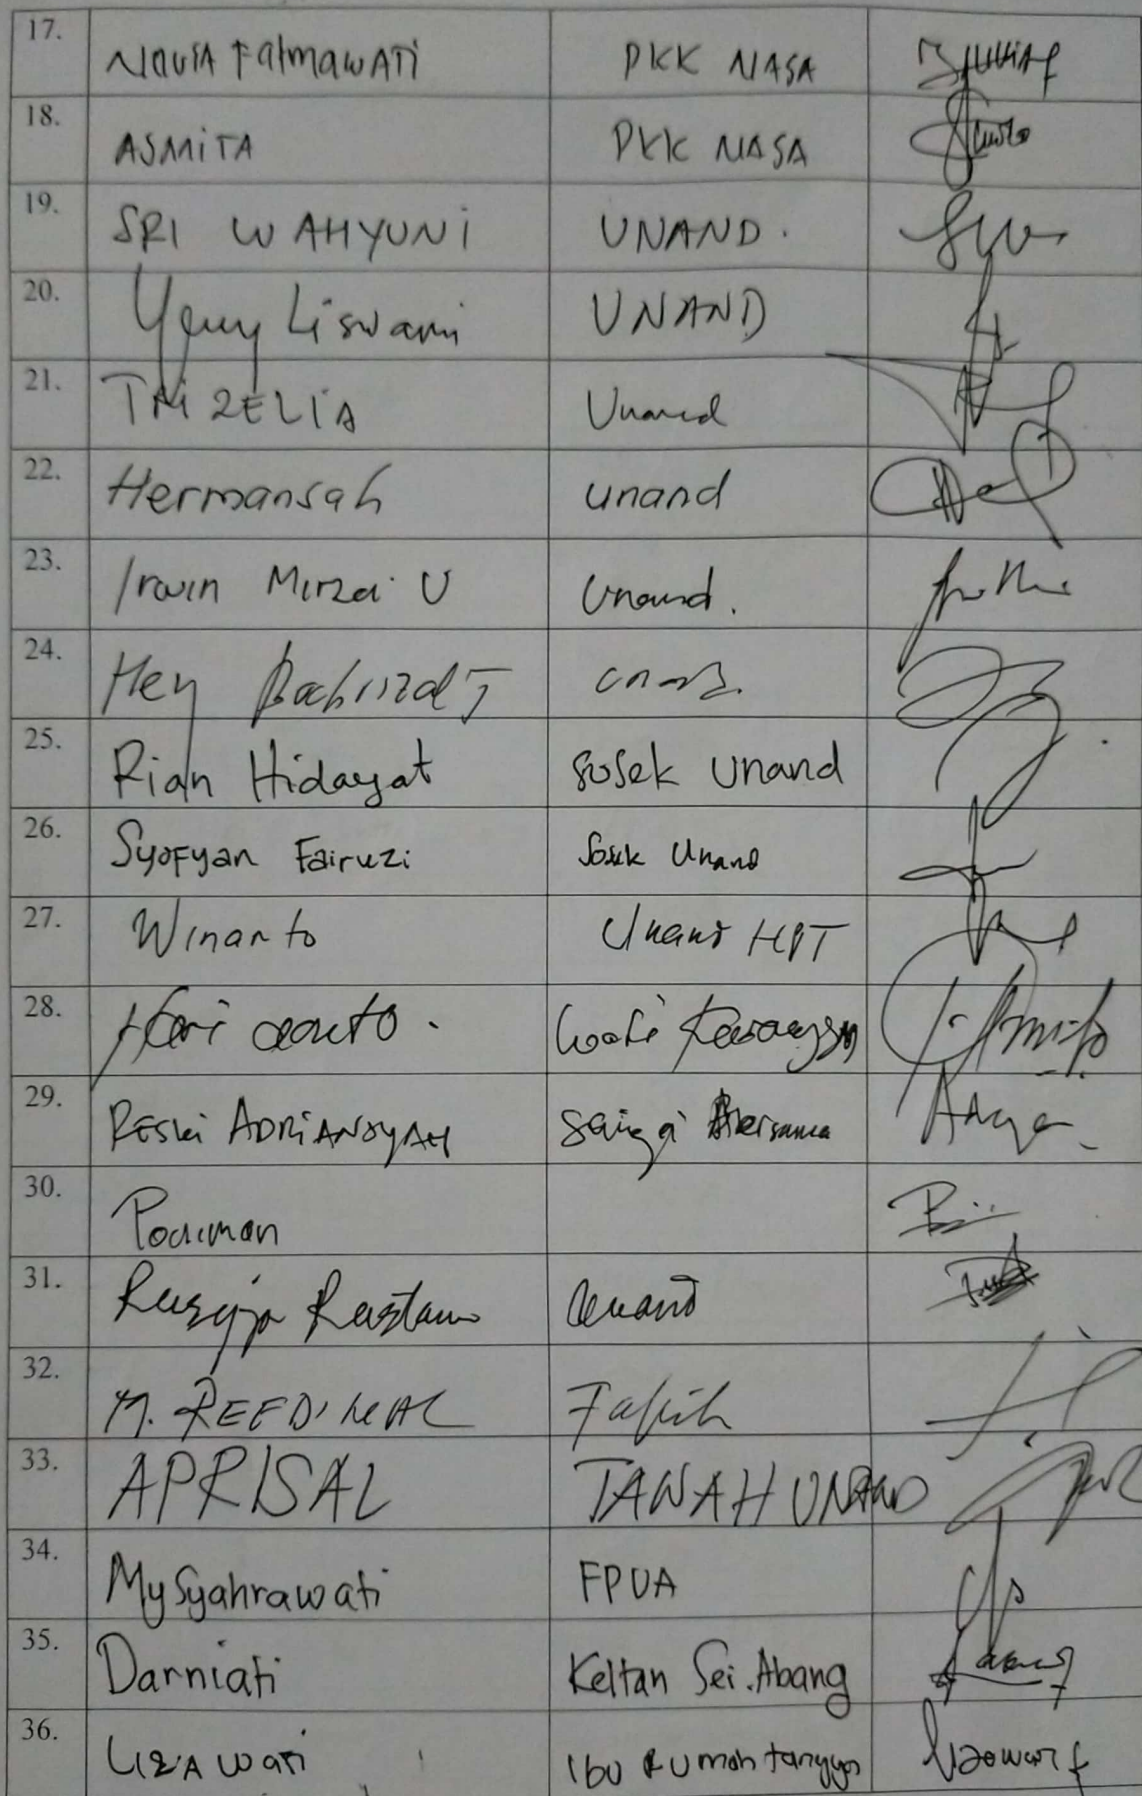 17. Novia Fatmawati PKK NASA
18. ASMiTA PKK NASA
19. SRI WAHYUNi UNAND.
20. Yeny Liswarni UNAND
21. TRiZELiA Unand
22. Hermansah unand
23. Irwin Mirza U Unand.
24. Hery Bachrizal T
25. Rian Hidayat Sosek Unand
26. Syofyan Fairuzi Sosek Unand
27. Winarto Unand HPT
28. Heri
29. RESki ADRiANSYAH Bersama
30.
31. Rusfa Rustam Unand
32. M.
33. APRISAL TANAH UNAND
34. My Syahrawati FPUA
35. Darniati Keltan Sei.Abang
36. LIZA Wati Ibu Rumah tangga